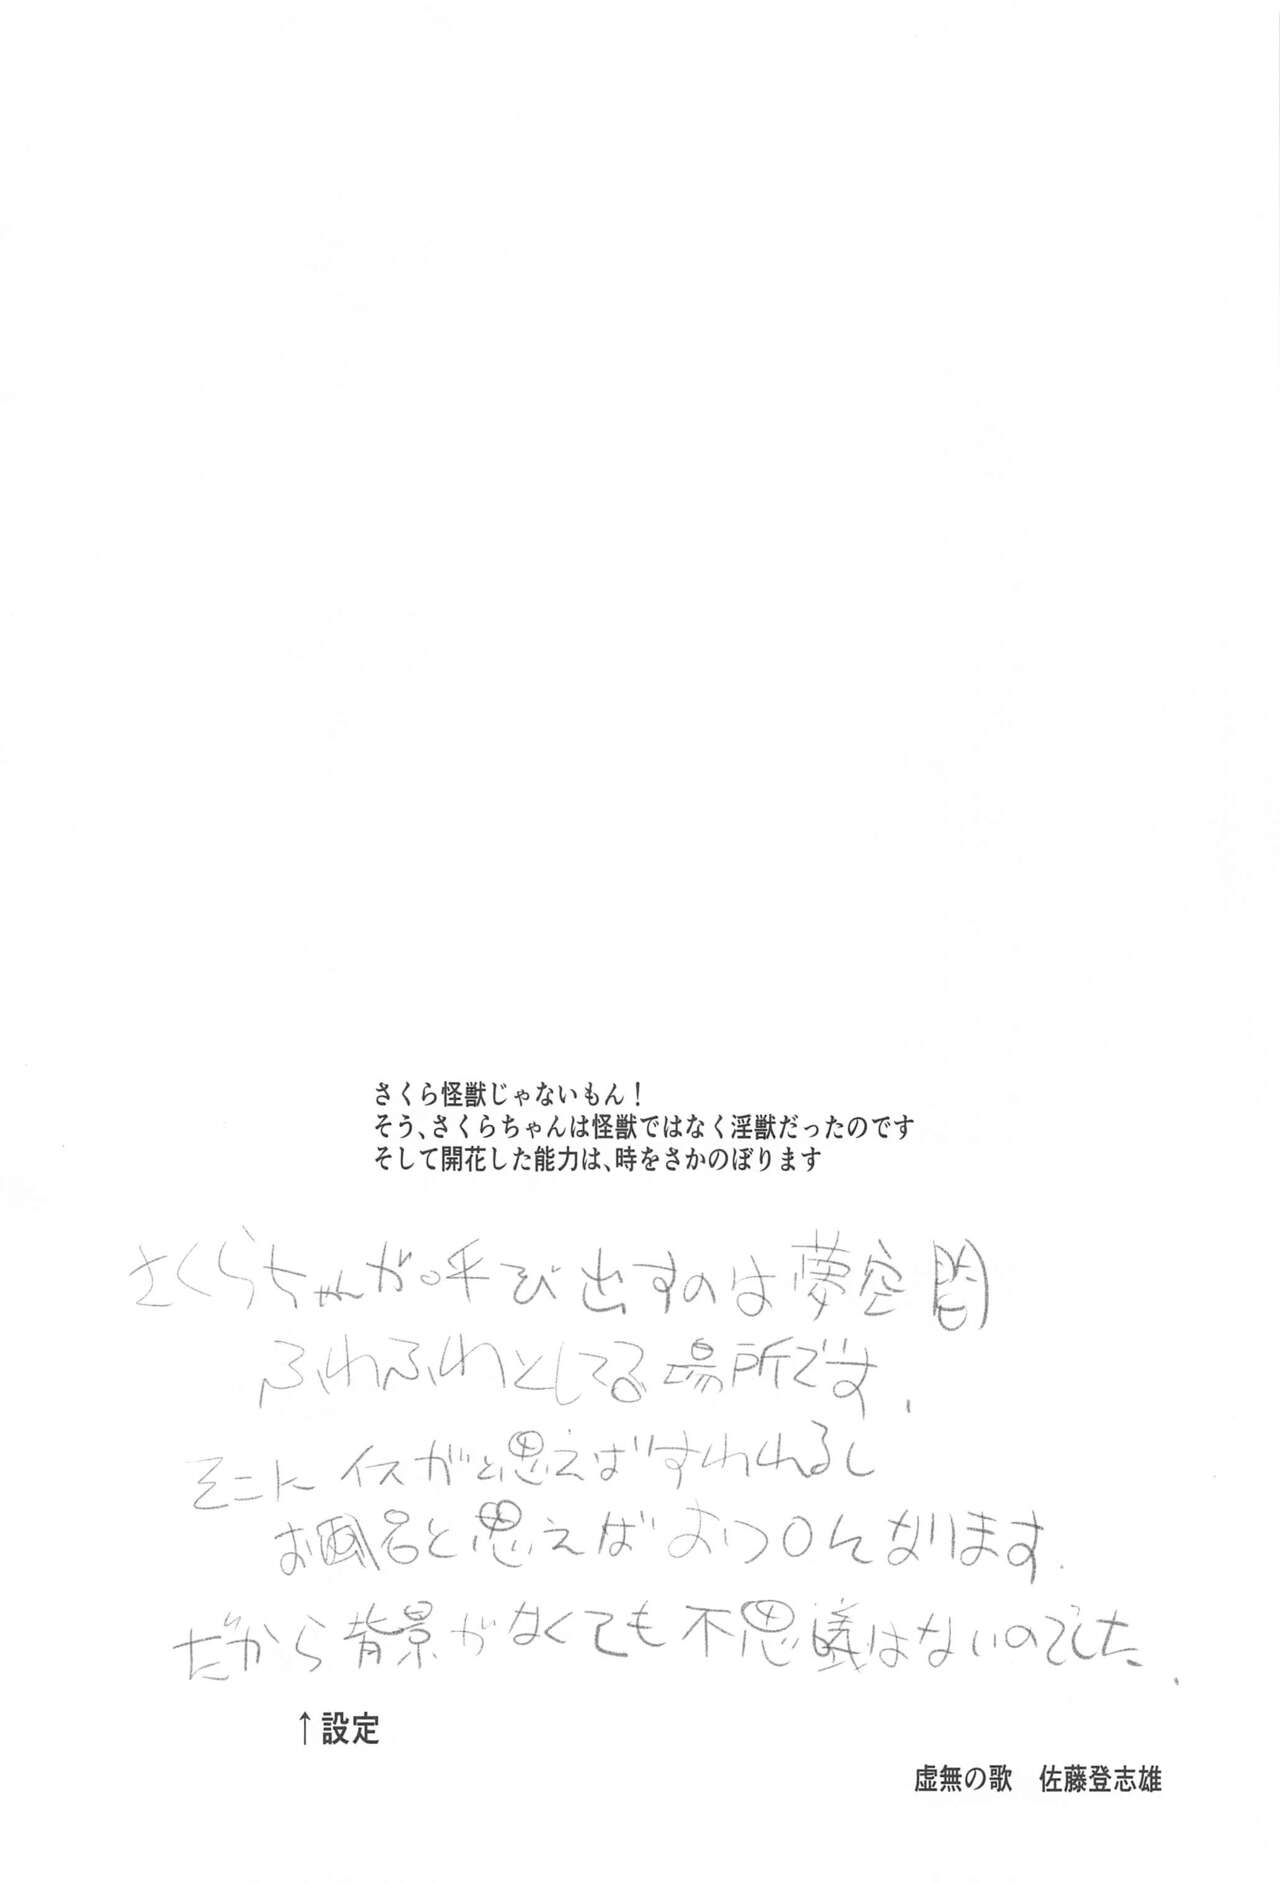 さくら怪獣じゃないもん！
そう、さくらちゃんは怪獣ではなく淫獣だったのです
そして開花した能力は、時をさかのぼります
さくらちゃんが呼び出すのは夢空間
ふわふわとしてる場所です.
そこに イスがと思えばすわれるし
お風呂と思えば なります.
だから背景がなくても不思議はないのでした.
↑設定
虚無の歌　佐藤登志雄